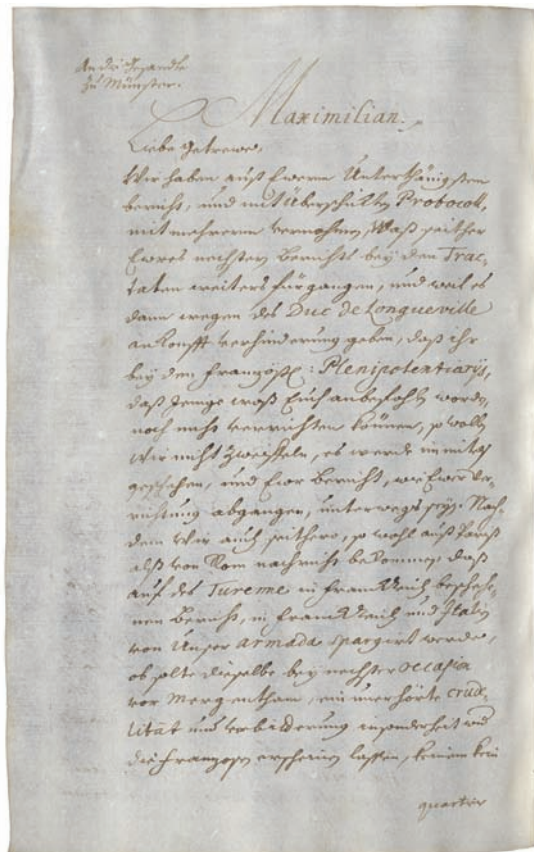 An die Gesandte
zu Münster.
Maximilian.
Liebe Getrewe,
Wir haben auß Ewerm Underthenigsten
bericht, und mit überschickten Protocoll,
mit mehrerm vernohmen, Waß seither
Ewres nechsten Berichts bey den Trac-
taten weiters fürgangen, und weil es
dann wegen des Duc de Longueville
ankonfft verhinderung geben, daß ihr
bey den französ: Plenipotentiarijs,
daß Jenige waß Euch anbefohlen worden,
noch nicht verrichten können, so wollen
Wir nicht zweifeln, es werde inmitels
geschehen, und Ewer bericht, wie Ewer ver-
richtung abgangen, unterwegs sein. Nach-
dem Wir auch seithero, so wohl auß Pariß
alß von Rom nachricht bekommen, daß
auf des Turenne in Frankreich beschehe-
nen bericht, in Frankreich und Italien
von Unser Armada spargirt werde,
ob solte dieselbe bey nechster occasion
vor Mergentham, ein unerhörte crude-
litât und verbitterung insonderheit wid
die Franzosen erscheinen lassen, keinem kein
quartir